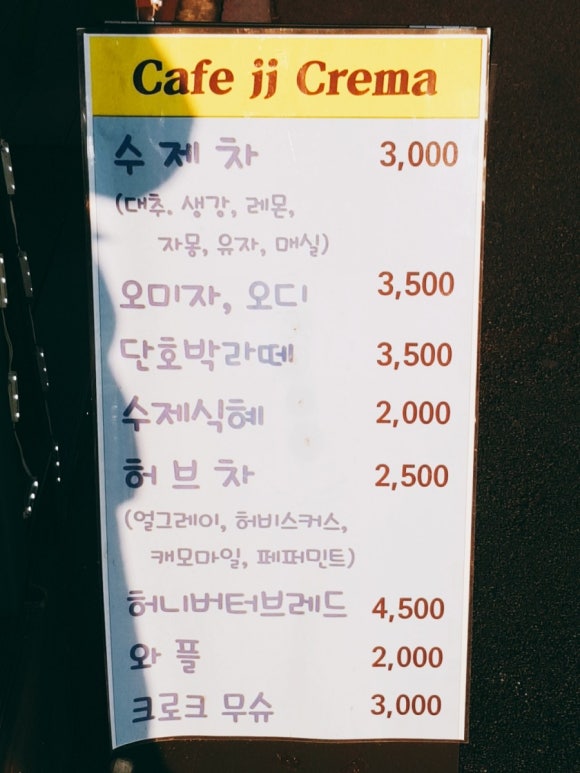 Cafe jj Crema
수제차 3,000
(대추. 생강, 레몬,
자몽, 유자, 매실)
오미자, 오디 3,500
단호박라떼 3,500
수제식혜 2,000
허브차 2,500
(얼그레이, 허비스커스,
캐모마일, 페퍼민트)
허니버터브레드 4,500
와플 2,000
크로크 무슈 3,000